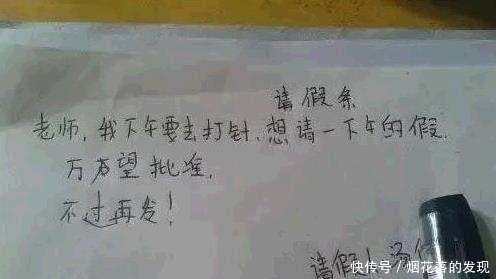 请假条
老师，我下午要去打针，想请一下午的假，
万方望批准，
不过再发！
请假人
快传号/烟花落的发现